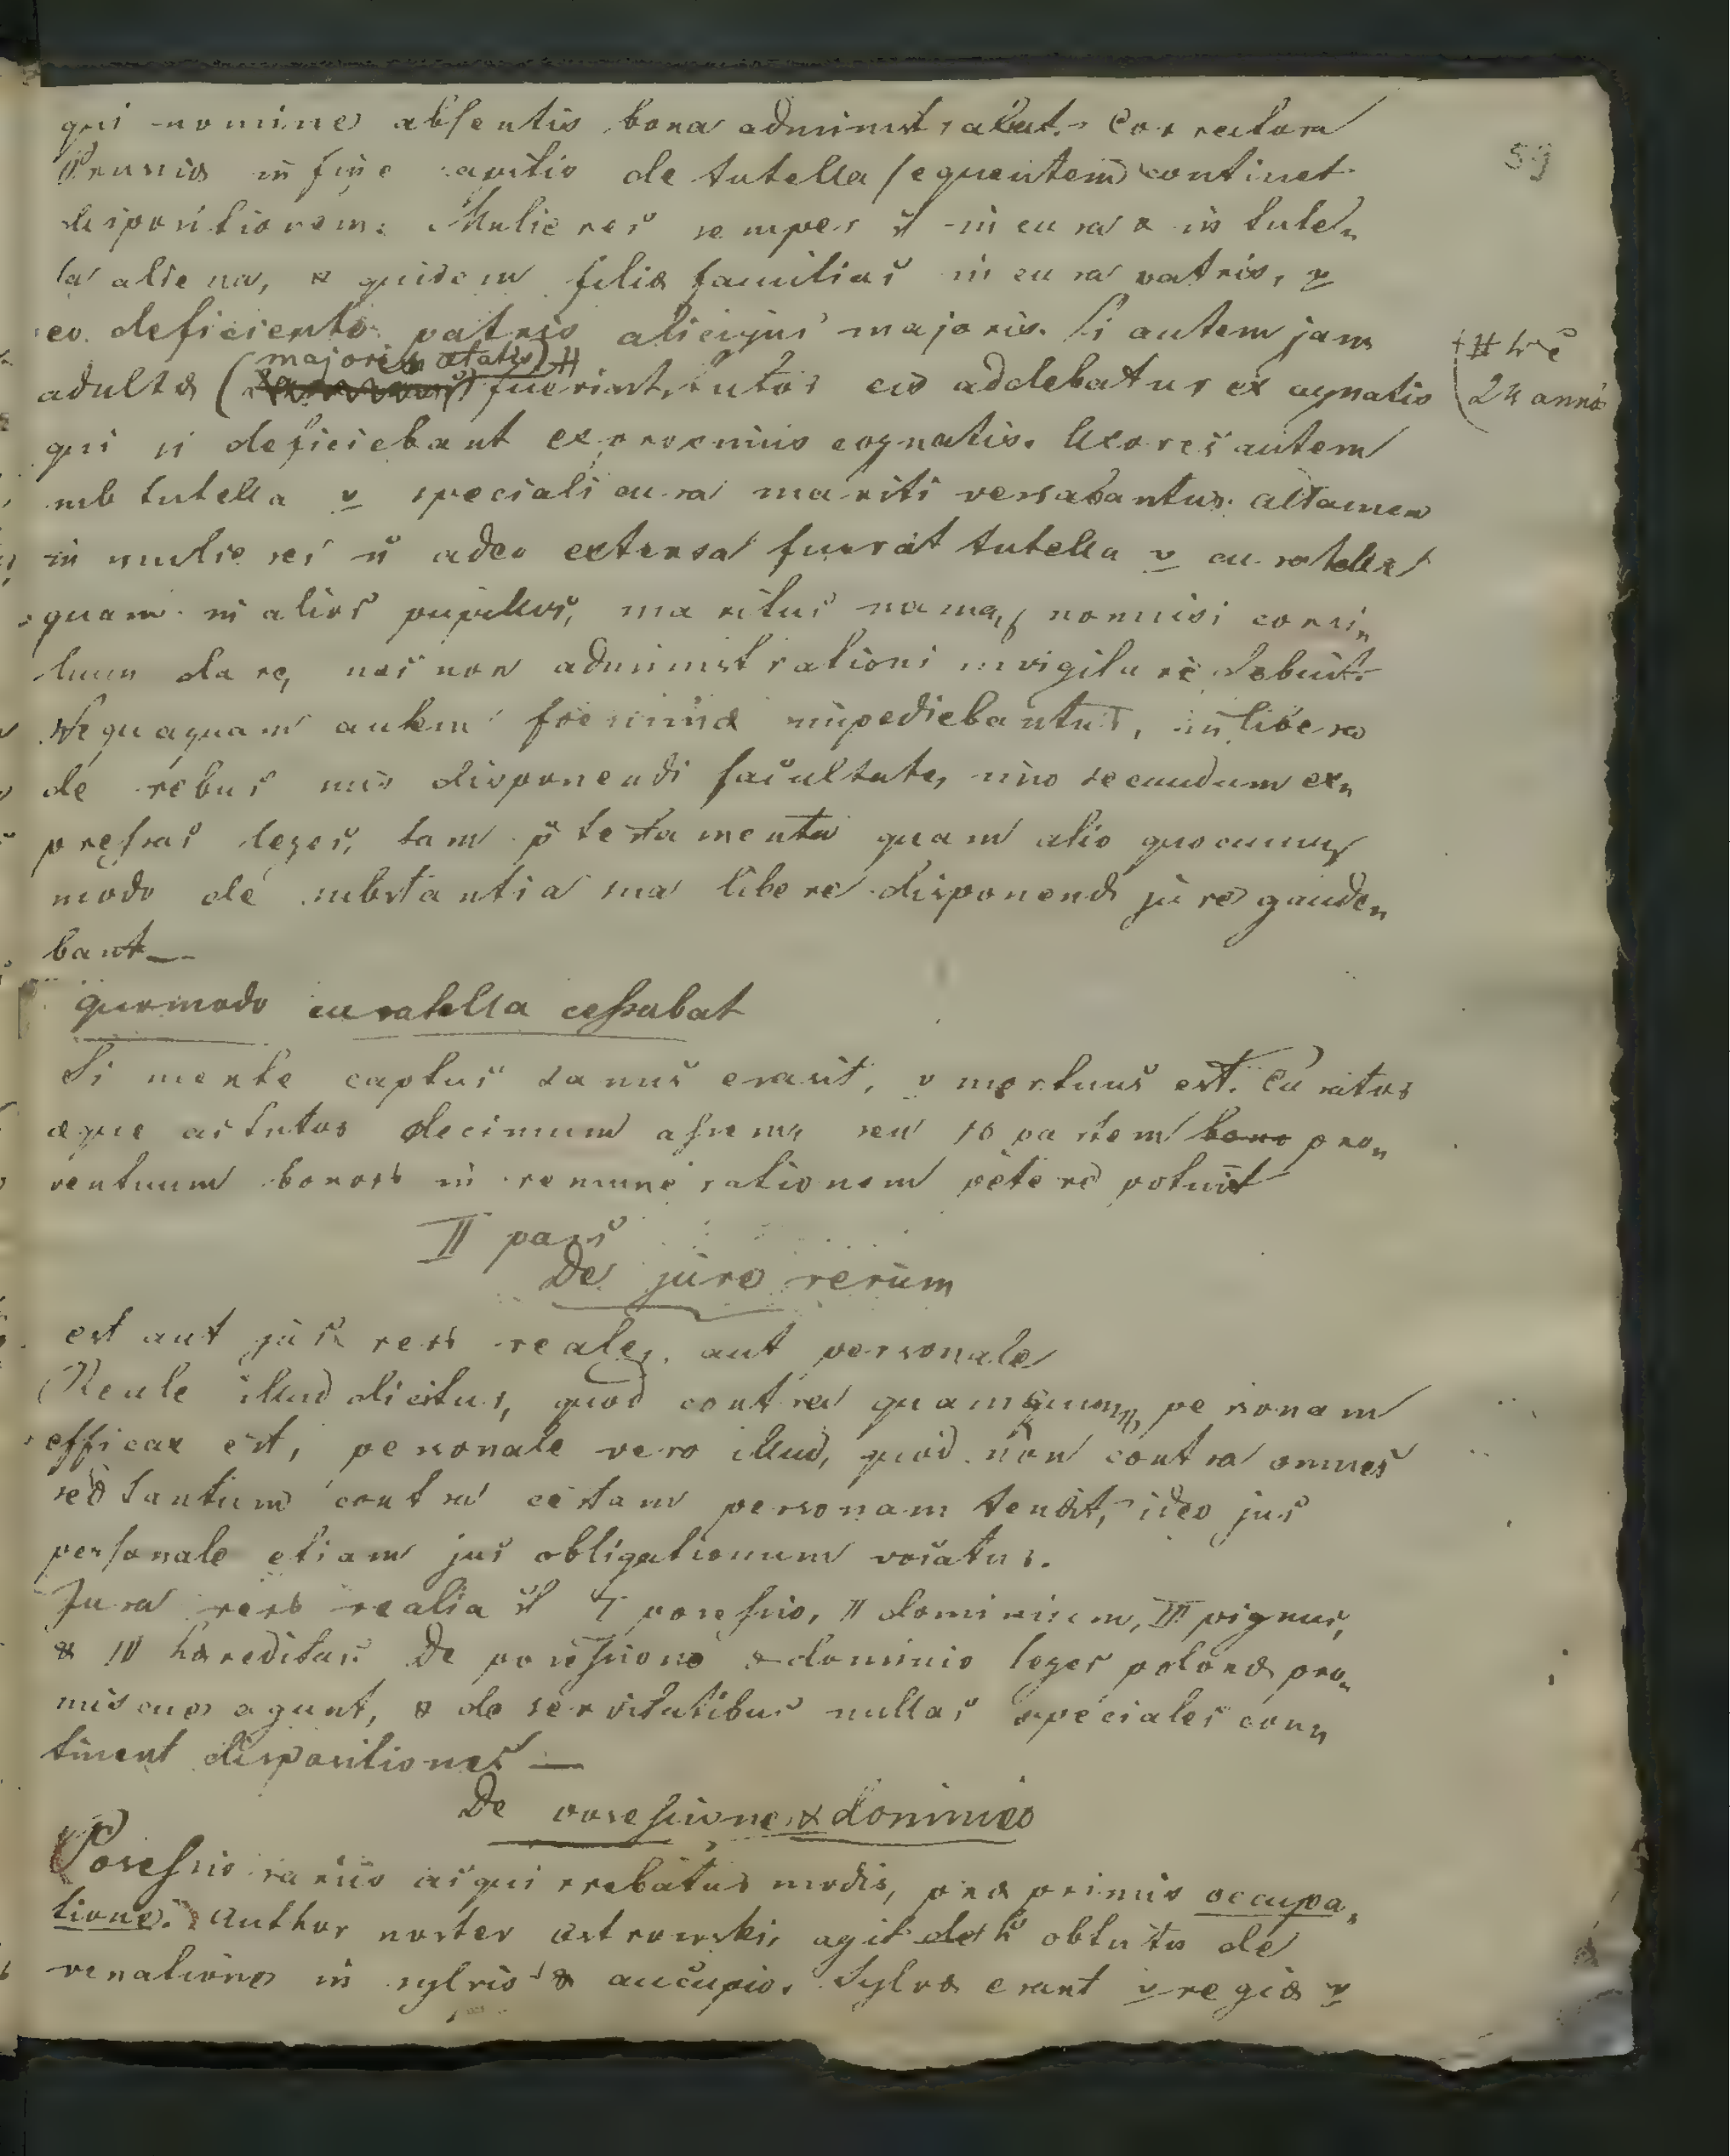 qui nomine absentis bona administrabat. Correctura
59
Prussiæ in fine capitis de tutella sequentem continet
dispositionem: Mulieres semper st in cura & in tute„
la aliena, & quidem filiæ familias in cura patris, v
eo deficiente patris alicujus majoris. Si autem jam
majoris ætatis) #
adultæ ( fuerint, tutor eis addebatur ex agnatis
# h e
24 anno
qui si deficiebant ex proximis cognatis. Uxores autem
sub tutella v speciali cura mariti versabantur. attamen
in mulieres ñ adeo extensa fuerat tutella v curatella
quam in alios pupillos, maritus namq, nonnisi consi„
lium dare, nec non administrationi invigilare debuit.
Nequaquam autem foeminæ impediebantur, in libera
de rebus suis disponendi facultate, imo secundum ex„
pressas leges, tam p testamenta quam alio quocunq
modo de substantia sua libere disponendi jure gaude„
bant—
Quomodo curatella cessabat
Si mente captus sanus evasit, v mortuus est. Curator
æque ac tutor decimum assem, seu 10 partem bono pro„
ventuum bonor in remunerationem petere potuit
II pars
De jure rerum
est aut jus rer reale, aut personale
Reale illud dicitur, quod contra quamcumq personam
efficax est, personale vero illud, quod non contra omnes
sed tantum contra certam personam tendit, ideo jus
personale etiam jus obligationum vocatur.
Jura rer realia st I possessio, II dominium, III pignus,
& IV hæreditas. De possessione & dominio leges polonæ pro„
miscue agunt, & de servitutibus nullas speciales con„
tinent dispositiones —
De possessione & dominio
Possessio variis acquirebatur modis, præ primis occupa„
tione. Author noster Ostrowski, agit de obtutu de
venatione in sylvis & aucupio. Sylvæ erant v regiæ v